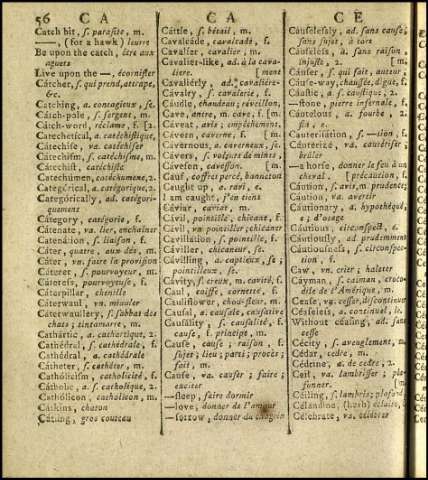 56 C A
Catch bit, s. parasite, m.
——, (for a hawk) leurre
Be upon the catch, être aux
aguets
Live upon the —, écornifler
Cátcher, s. qui prend, attrape,
&c.
Catching, a. contagieux, se.
Cátch-pole, s. sergent, m.
Cátch-word, réclame, f. [2.
Catechetical, a. catéchistique,
Cátechise, va. catéchiser
Cátechism, s. catéchisme, m.
Cátechist, catéchiste
Catechúmen, catéchumene, 2.
Categórical, a. catégorique, 2.
Categórically, ad. catégori-
quement
Cátegory, catégorie, f.
Cátenate, va. lier, enchaîner
Catenátion, s. liaison, f.
Cáter, quatre, aux dés, m.
Cáter, va. faire la provision
Cáterer, s. pourvoyeur, m.
Cáteress, pourvoyeuse, f.
Cáterpillar, chenille
Cáterwaul, vn. miauler
Cáterwaullery, s. sabbat des
chats; tintamarre, m.
Cathártic, a. cathartique, 2.
Cathédral, s. cathédrale, f.
Cathédral, a. cathédrale
Cátheter, s. cathéter, m.
Cathólicism, catholicité, f.
Cátholic, a. s. catholique, 2.
Cathólicon, catholicon, m.
Catkins, chaton
Cátling, gros couteau
C A
Cáttle, s. bétail, m.
Cavalcáde, cavalcade, f.
Cavalíer, cavalier, m.
Cavalíer-like, ad. à la cava-
liere. [ment
Cavaliérly, ad. cavaliére-
Cávalry, s. cavalerie, f.
Cáudle, chaudeau; réveillon,
Cave, antre, m. cave, f. [m.
Cáveat, avis; empêchement,
Cávern, caverne, f. [m.
Cávernous, a. caverneux, se.
Cávers, s. voleurs de mines,
Cávesson, cavesson, m.
Cauf, coffret percé, banneton
Caught up, a. ravi, e.
I am caught, j'en tiens
Cáviar, caviar, m.
Cávil, pointille, chicane, f.
Cávil, vn. pointiller; chicaner
Cavillátion, s. pointille, f.
Cáviller, chicaneur, se.
Cávilling, a. captieux, se;
pointilleux, se.
Cávity, f. creux, m. cavité, f.
Caul, coiffe, cornette, f.
Cauliflower, chou-fleur, m.
Causal, a. causale, causative
Causálity, s. causalité, f.
cause, f. principe, m.
Cause, cause; raison, f.
sujet; lieu; parti; procès;
fait, m.
Cause, va. causer; faire;
exciter
—sleep, faire dormir
—love, donner de l'amour
—sorrow, donner du chagrin
C E
Cáuselessly, ad. sans cause,
sans sujet, à tort
Cáuseless, a. sans raison,
injuste, 2. [m.
Cáuser, s. qui fait, auteur,
Cáuse-way, chaussée, digue, f.
Cáustic, a. s. caustique, 2.
—stone, pierre infernale, f.
Cáutelous, a. fourbe, 2.
fin, e.
Cauterisátion, s. —tion, f.
Cáuterize, va. cautériser;
brûler
—a horse, donner le feu à un
cheval. [précaution, f.
Cáution, s. avis, m. prudence;
Caution, va. avertir
Cáutionary, a. hypothéqué,
e; d'otage
Cáutious, circonspect, e.
Cáutiously, ad. prudemment
Cáutiousness, s. circonspec-
tion, f.
Caw, vn. crier; haleter
Cayman, s. caïman, croco-
dile de l'Amérique, m.
Cease, va. cesser, discontinuer
Céaseless, a. continuel, le.
Without céasing, ad. sans
cesse
Cécity, s. aveuglement, m.
Cédar, cedre, m.
Cédrine, a. de cedre, 2.
Ceil, va. lambrisser, pla-
fonner. [m.
Céiling, s. lambris; plafond,
Célandine, (herb) éclaire, f.
Célebrate, va. célébrer